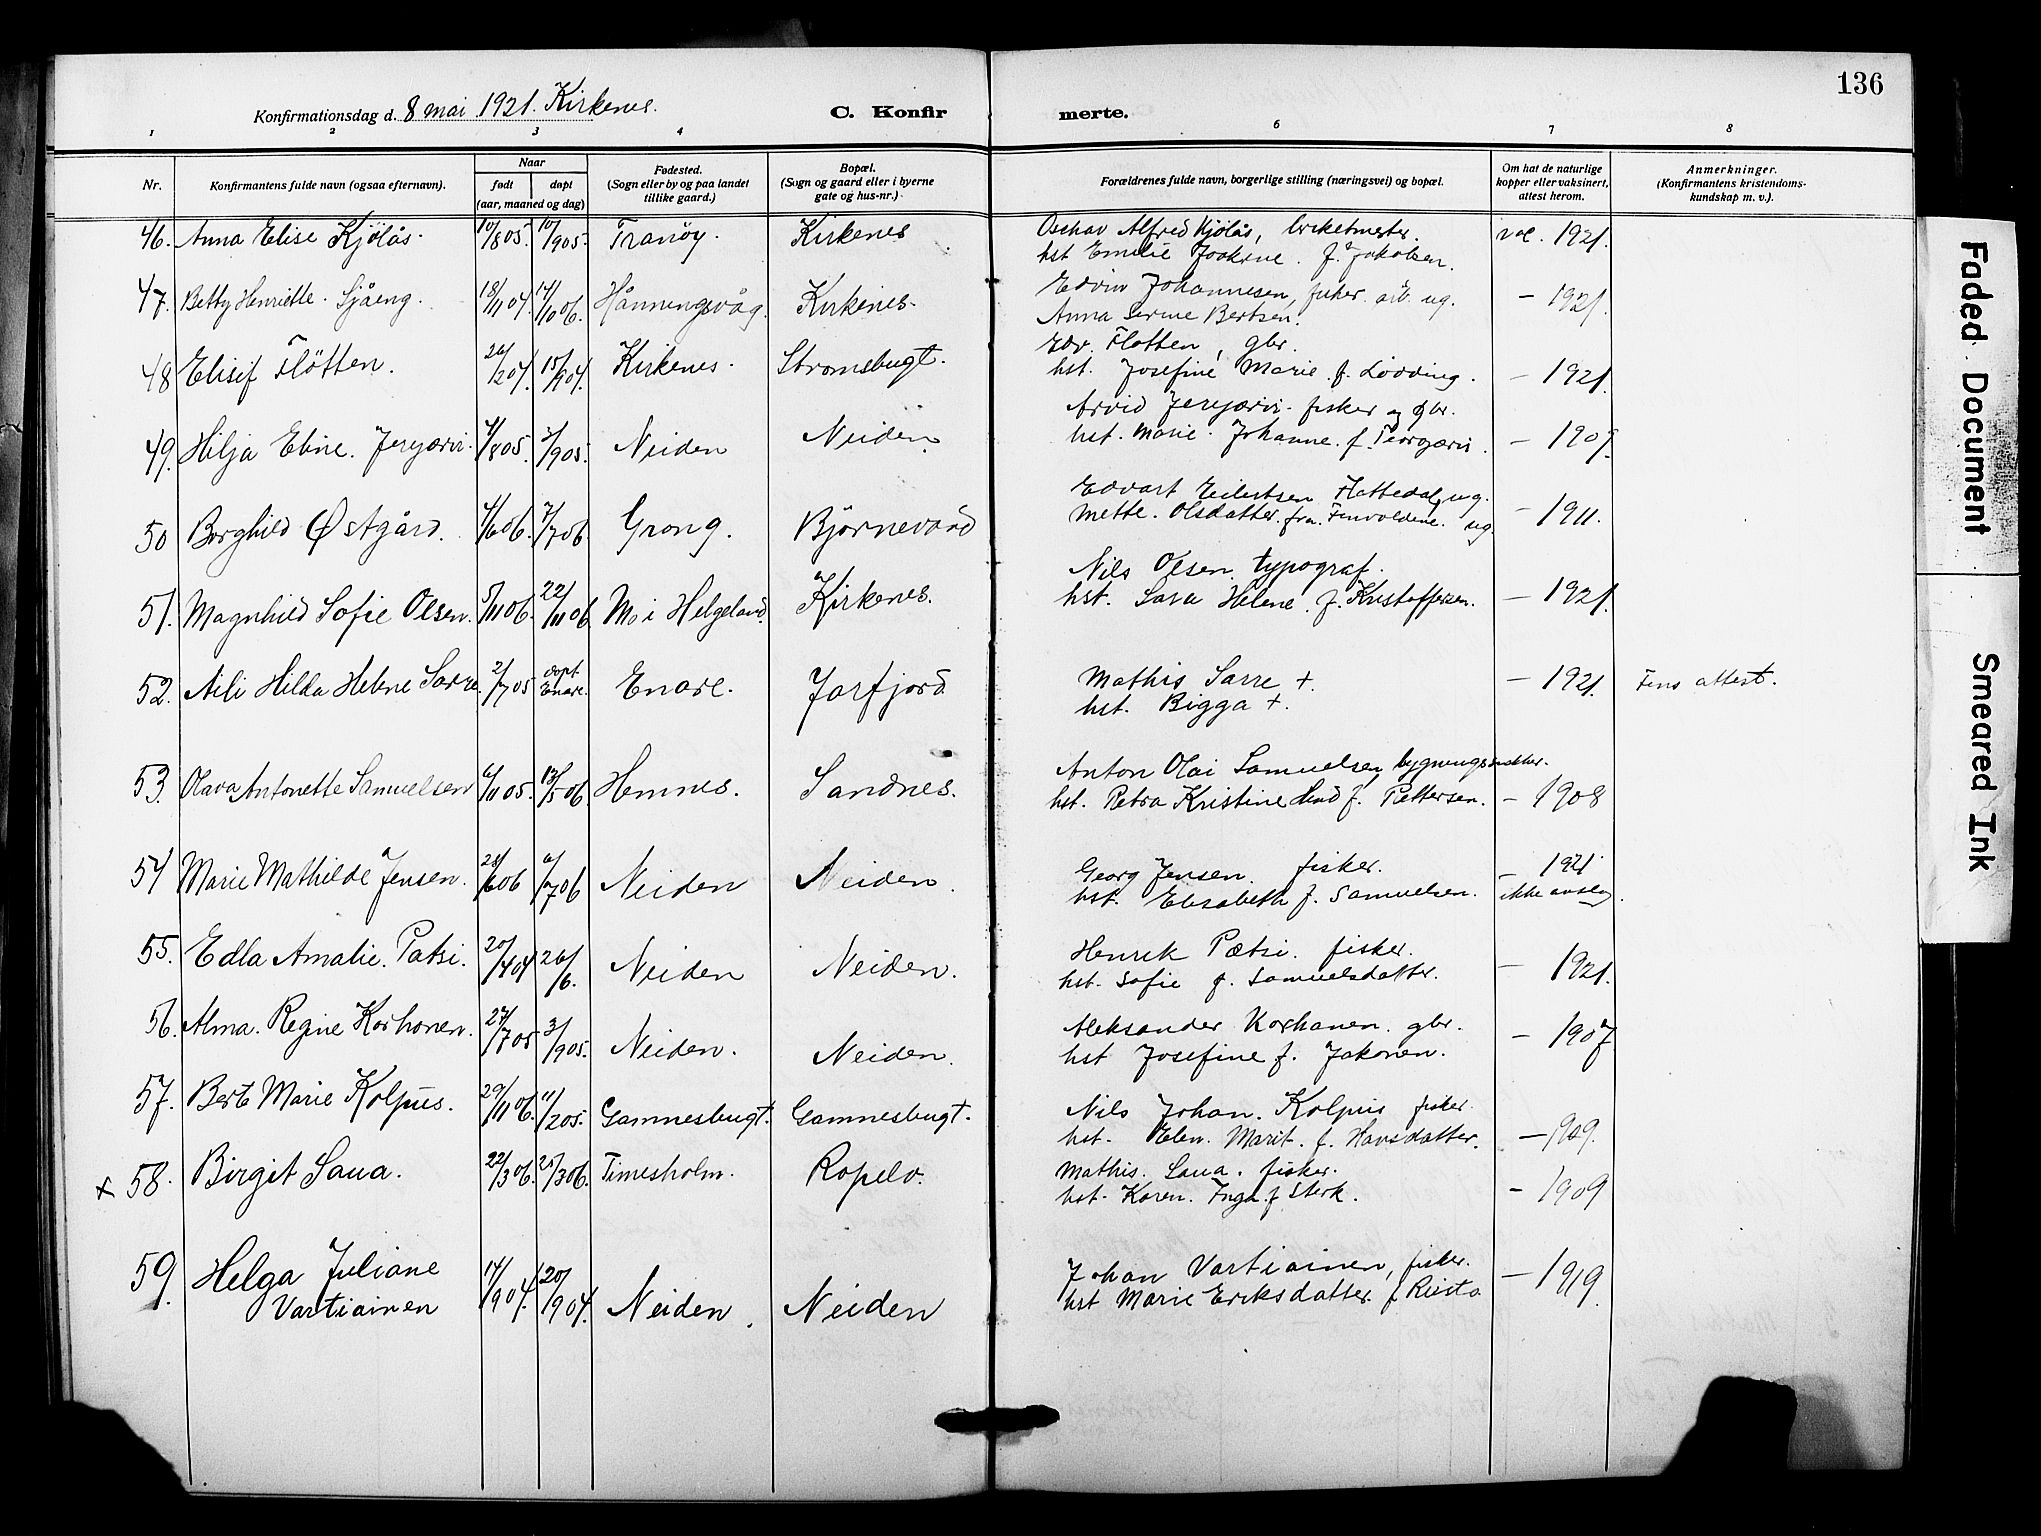 136
Konfirmationsdag d. 8 mai 1921. Kirkenes.
C. Konfirmerte.
1 2 3 4 6 7 8
Nr.
Konfirmantens fulde navn (ogsaa efternavn).
Naar
født
døpt
(aar, maaned og dag)
Fødested.
(Sogn eller by og paa landet
tillike gaard.)
Bopæl.
(Sogn og gaard eller i byerne
gate og hus-nr.)
Forældrenes fulde navn, borgerlige stilling (næringsvei) og bopæl.
Om hat de naturlige
kopper eller vaksinert,
attest herom.
Anmerkninger.
(Konfirmantens kristendoms-
kundskap m. v.).
46. Anna Elise Kjölås. 10/8 05. 10/9 05. Tranöy. Kirkenes
Oschar Alfred Kjölås, briketmester.
hst Emelie Joakine f. Jakobsen.
vac. 1921.
47. Betty Henriette. Sjåeng. 18/11 04. 14/10 06. Hånningsvåg. Kirkenes.
Edvin Johannesen, fisker. arb. ug.
Anna Serine Bertsen.
— 1921.
48 Elisif Flötten. 26/2 04. 15/9 04. Kirkenes. Stromsbugt.
Edv. Flotten, gbr.
hst. Josefine Marie f. Lödding.
— 1921.
49. Hilja Eline. Jerijærvi. 4/8 05. 3/9 05. Neiden Neiden.
Arvid Jerijærvi. fisker og gbr.
hst. Marie. Johanne. f.
— 1909.
50 Borghild Østgård. 4/6 06. 7/7 06. Grong. Björnevand
Edvart Eilertsen Flattedal, ug.
Mette. Olsdatter. fra. Finvoldene. ug.
— 1911.
51. Magnhild Sofie Olsen. 5/11 06. 22/11 06. Mo i Helgeland. Kirkenes.
Nils Olsen. typograf.
hst. Sara Helene. f. Kristoffersen.
— 1921.
52. Aili Hilda Helene Sarre. 2/7 05 döpt Enare. Enare. Jarfjord
Mathis Sarre +.
hst. Bigga +.
— 1921. Fins attest.
53. Olava Antonette Samuelsen 6/11 05. 13/5 06 Hemnes. Sandnes.
Anton Olai Samuelsen, bygningssnekker.
hst. Petra Kristine Lind f. Pettersen.
— 1908
54 Marie Mathilde Jensen. 28/6 06 6/7 06 Neiden Neiden.
Georg Jensen. fisker.
hst. Elisabeth f. Samuelsen.
— 1921
ikke anslag.
55. Edla Amalie. Patsi. 20/4 04 26/6. Neiden Neiden.
Henrik Pætsi. fisker.
hst. Sofie f. Samuelsdatter.
— 1921.
56. Alma. Regine Korhonen. 27/7 05 3/9 05. Neiden. Neiden.
Aleksander Korhanen. gbr.
hst Josefine f. Jakonen.
— 1907
57. Berte Marie Kolpus. 29/11 06. 11/2 05. Gamnesbugt. Gamnesbugt.
Nils Johan. Kolpus fisker.
hst. Elen. Marit. f. Hansdatter.
— 1909.
x 58. Birgit Saua. 22/3 06. 25/3 06. Timesholm. Ropelv.
Mathis. Saua. fisker.
hst. Karen. Inga f. Sterk.
— 1909
59. Helga Juliane
Vartiainen 14/9 04. 20/9 04. Neiden. Neiden
Johan Vartiainen, fisker.
hst Marie Eriksdatter f. Riesto
— 1919.
Faded Document
Smeared Ink